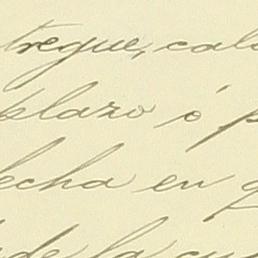 tregue, cal
plazo ó p
echa en q
de la cu